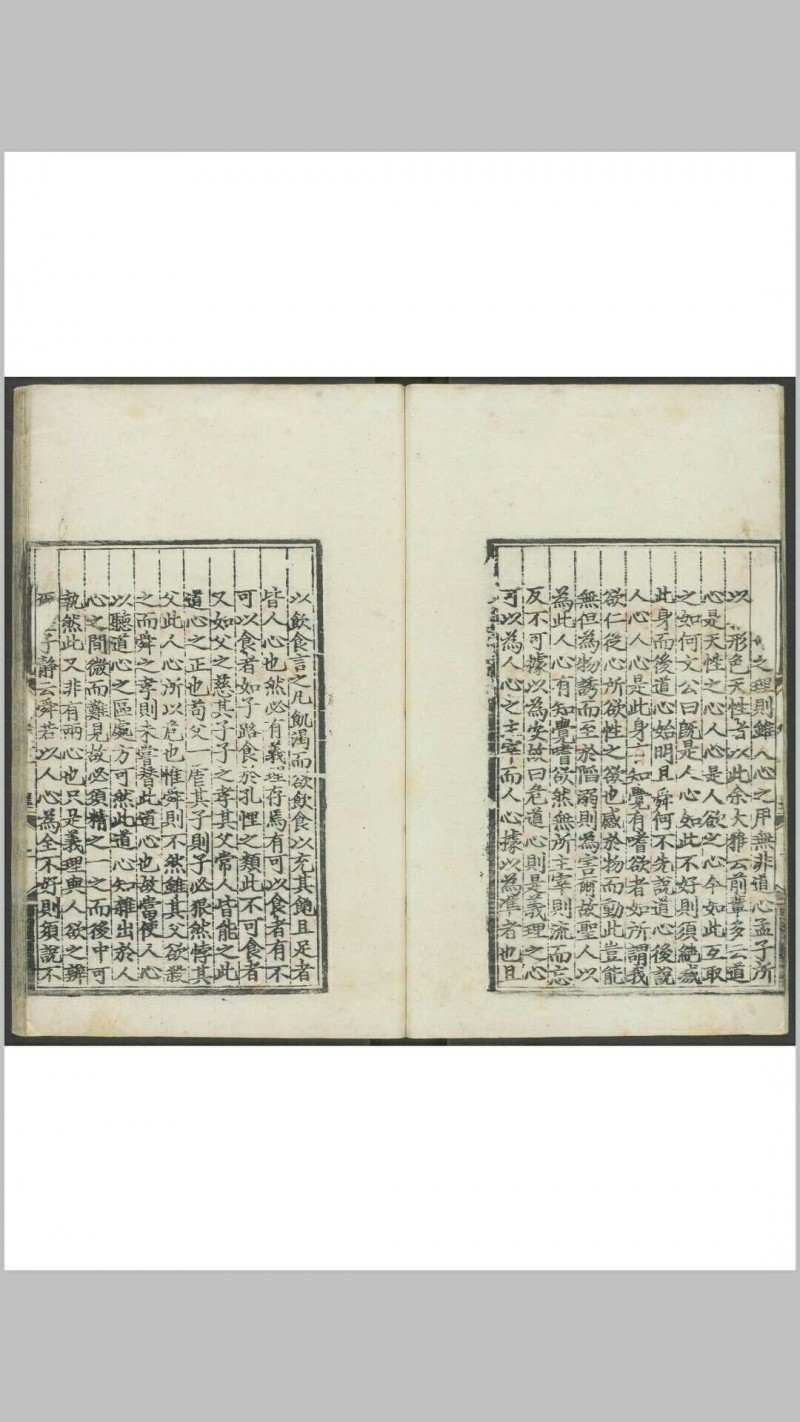 之理則雖人心之用無非道心孟子所
以形色天性者以此余大雅云前輩多云道
心是天性之心人心是人欲之心今如此互取
之如何文公曰旣是人心如此不好則須絶滅
此身而後道心始明且舜何不先說道心後說
人心人心是此身有知覺有嗜欲者如所謂我
欲仁從心所欲性之欲也感於物而動此豈能
無但為物誘而至於陷溺則為害爾故聖人以
為此人心有知覺嗜欲然無所主宰則流而忘
反不可據以為安故曰危道心則是義理之心
可以為人心之主宰而人心據以為準者也且
以飲食言之凡飢渴而欲飲食以充其飽且足者
皆人心也然必有義理存焉有可以食者有不
可以食者如子路食於孔悝之類此不可食者
又如父之慈其子子之孝其父常人皆能之此
道心之正也苟父一虐其子則子必狠然悖其
父此人心所以危也惟舜則不然雖其父欲殺
之而舜之孝則未嘗替此道心也故當使人心
以聽道心之區處方可然此道心知雜出於人
心之間微而難見故必須精之一之而後中可
執然此又非有兩心也只是義理與人欲之辨
子靜云舜若以人心為全不好則須說不